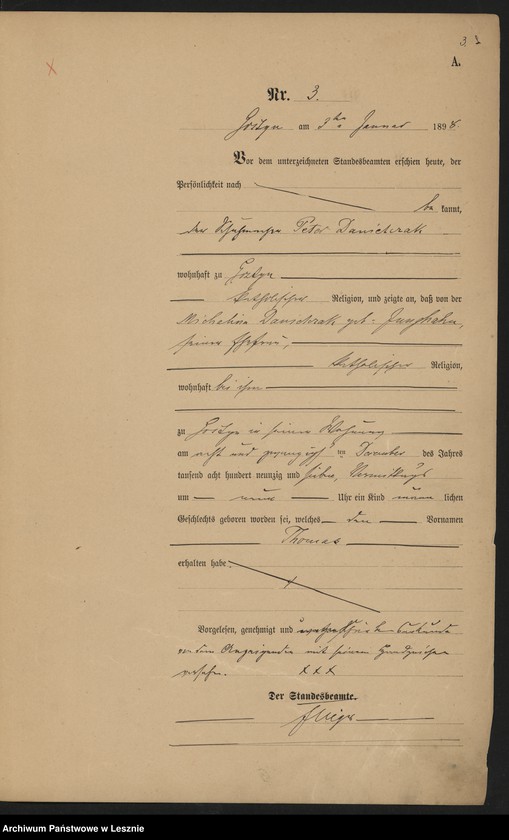 3
A.
Nr. 3.
am 3ten Januar 1898.
Vor dem unterzeichneten Standesbeamten erschien heute, der
Persönlichkeit nach
be kannt,
der Peter Danielczak
wohnhaft zu
katholischer Religion, und zeigte an, daß von der
Michalina Danielczak geb.
seiner Ehefrau,
katholischer Religion,
wohnhaft bei ihm
zu in seiner Wohnung
am acht und zwanzigsten Dezember des Jahres
tausend acht hundert neunzig und sieben, Vormittags
um neun Uhr ein Kind männ lichen
Geschlechts geboren worden sei, welches den Vornamen
Thomas
erhalten habe.
Vorgelesen, genehmigt und
von dem Anzeigenden mit seinem Handzeichen
versehen. xxx
Der Standesbeamte.
Archiwum Państwowe w Lesznie